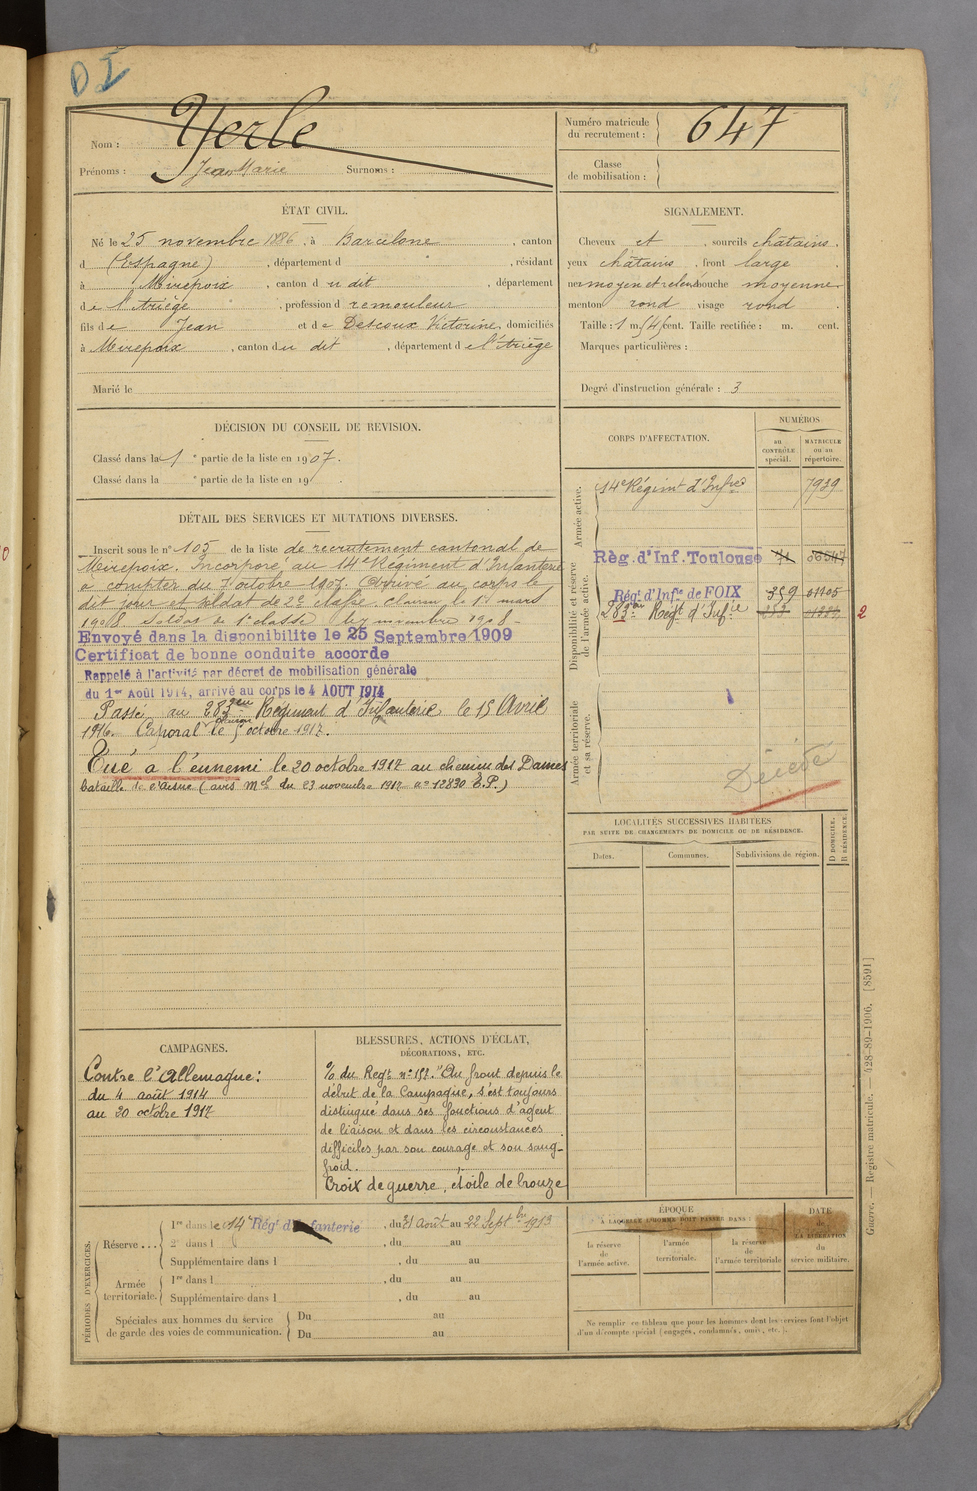 DI
Nom : Yerle
Prénoms : Jean Marie Surnoms :
Numéro matricule du recrutement : 647
Classe de mobilisation :
ÉTAT CIVIL.
Né le 25 novembre 1886, à Barcelone, canton
d (Espagne), département d , résidant
à Mirepoix, canton du dit, département
de l'Ariège, profession d remouleur
fils de Jean et de Descoux Victorine, domiciliés
à Mirepoix, canton du dit, département de l'Ariège
Marié le
SIGNALEMENT.
Cheveux et , sourcils châtains.
yeux châtains, front large
nez moyen et relevé bouche moyenne
menton rond visage rond
Taille : 1 m. 54 cent. Taille rectifiée : m. cent.
Marques particulières :
Degré d'instruction générale : 3
DÉCISION DU CONSEIL DE REVISION.
Classé dans la 1 e partie de la liste en 1907.
Classé dans la e partie de la liste en 19
DÉTAIL DES SERVICES ET MUTATIONS DIVERSES.
Inscrit sous le n° 105 de la liste de recrutement cantonal de
Mirepoix. Incorporé au 14e Régiment d'Infanterie
à compter du 7 octobre 1907. Arrivé au corps le
dit jour et soldat de 2e classe. le 1er mars
1908. Soldat de 1e classe le 7 novembre 1908 -
Envoyé dans la disponibilite le 25 Septembre 1909
Certificat de bonne conduite accorde
Rappelé à l'activité par décret de mobilisation générale
du 1er Août 1914, arrivé au corps le 4 AOUT 1914
Passé au 283eme Régiment d'Infanterie le 15 Avril
1916. Caporal le 5 octobre 1917.
Tué à l'ennemi le 20 octobre 1917 au chemin des Dames
bataille de l'Aisne (avis Mel du 23 novembre 1917 n° 12830 E.P.)
CORPS D'AFFECTATION.
NUMÉROS
au CONTRÔLE spécial.
MATRICULE ou au répertoire.
Armée active.
14e Régimt d'Infrie 7939
Disponibilité et réserve de l'armée active.
Règ. d'Inf. Toulouse
Régt d'Infie de FOIX 359 01105
283ème Régt d'Infie
2
Armée territoriale et sa réserve.
Décédé
LOCALITÉS SUCCESSIVES HABITÉES
PAR SUITE DE CHANGEMENTS DE DOMICILE OU DE RÉSIDENCE.
Dates. Communes. Subdivisions de région. D DOMICILE. R RÉSIDENCE.
CAMPAGNES.
Contre l'Allemagne :
du 4 août 1914
au 20 octobre 1917
BLESSURES, ACTIONS D'ÉCLAT,
DÉCORATIONS, ETC.
% du Regt n° 157. "Au front depuis le
début de la Campagne, s'est toujours
distingué dans ses fonctions d'agent
de liaison et dans les circonstances
difficiles par son courage et son sang-
froid. "
Croix de guerre, étoile de bronze
PÉRIODES D'EXERCICES.
Réserve ...
1re dans le 14e Régt d'Infanterie, du 31 Août au 22 Septbre 1913
2e dans l , du au
Supplémentaire dans l , du au
Armée territoriale.
1re dans l , du au
Supplémentaire dans l , du au
Spéciales aux hommes du service de garde des voies de communication.
Du au
Du au
ÉPOQUE
À LAQUELLE L'HOMME DOIT PASSER DANS :
la réserve de l'armée active.
l'armée territoriale.
la réserve de l'armée territoriale
DATE de LA LIBÉRATION du service militaire.
Ne remplir ce tableau que pour les hommes dont les services font l'objet
d'un décompte spécial (engagés, condamnés, omis, etc.
Guerre. — Registre matricule. — 428-89-1906. [8591]